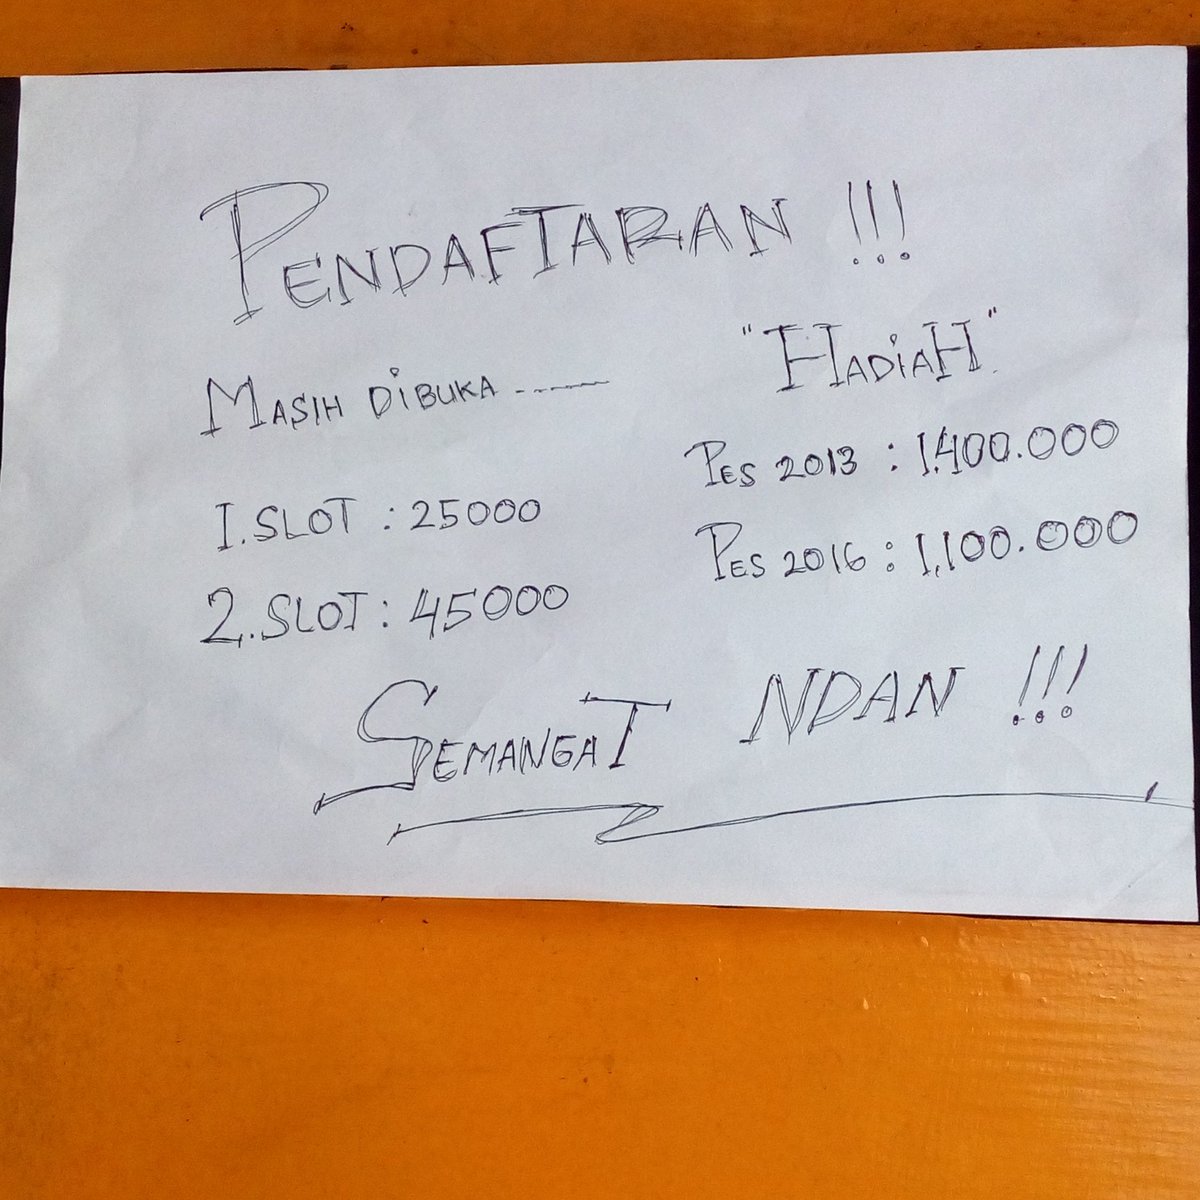 PENDAFTARAN !!!
MASIH DIBUKA .......
1. SLOT : 25000
2. SLOT : 45000
"HADIAH"
PES 2013 : 1.400.000
PES 2016 : 1,100.000
SEMANGAT NDAN !!!